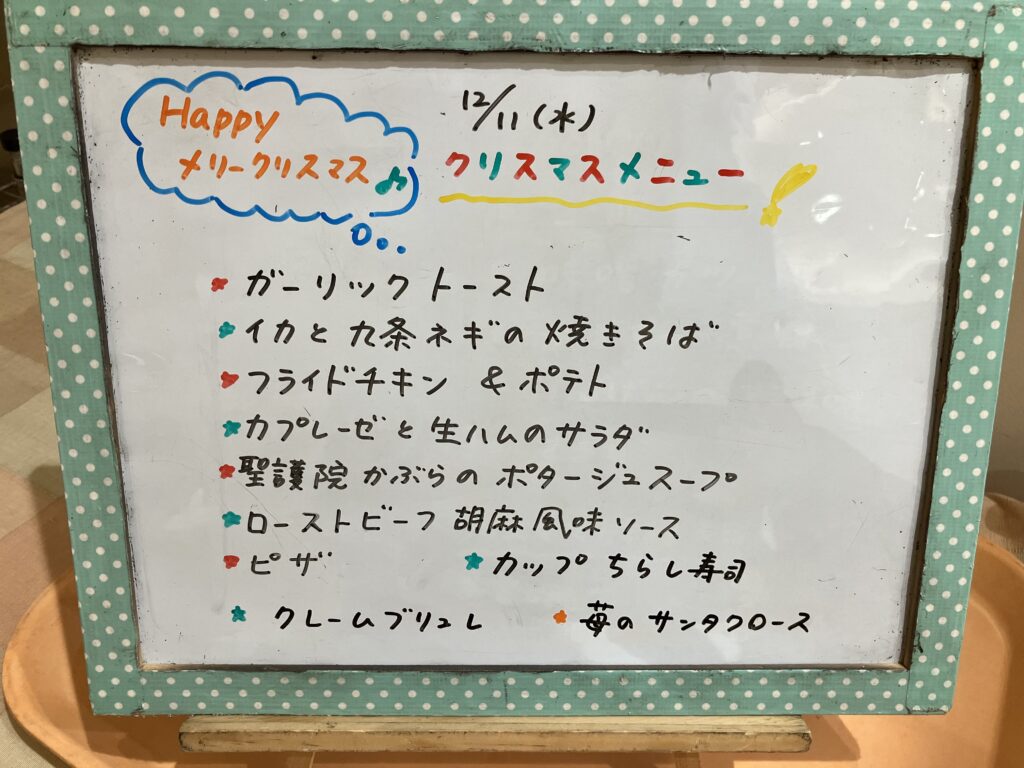 Happy
メリークリスマス♪
12/11(水)
クリスマスメニュー!
ガーリックトースト
イカと九条ネギの焼きそば
フライドチキン & ポテト
カプレーゼと生ハムのサラダ
聖護院かぶらのポタージュスープ
ローストビーフ 胡麻風味ソース
ピザ
カップちらし寿司
クレームブリュレ
苺のサンタクロース